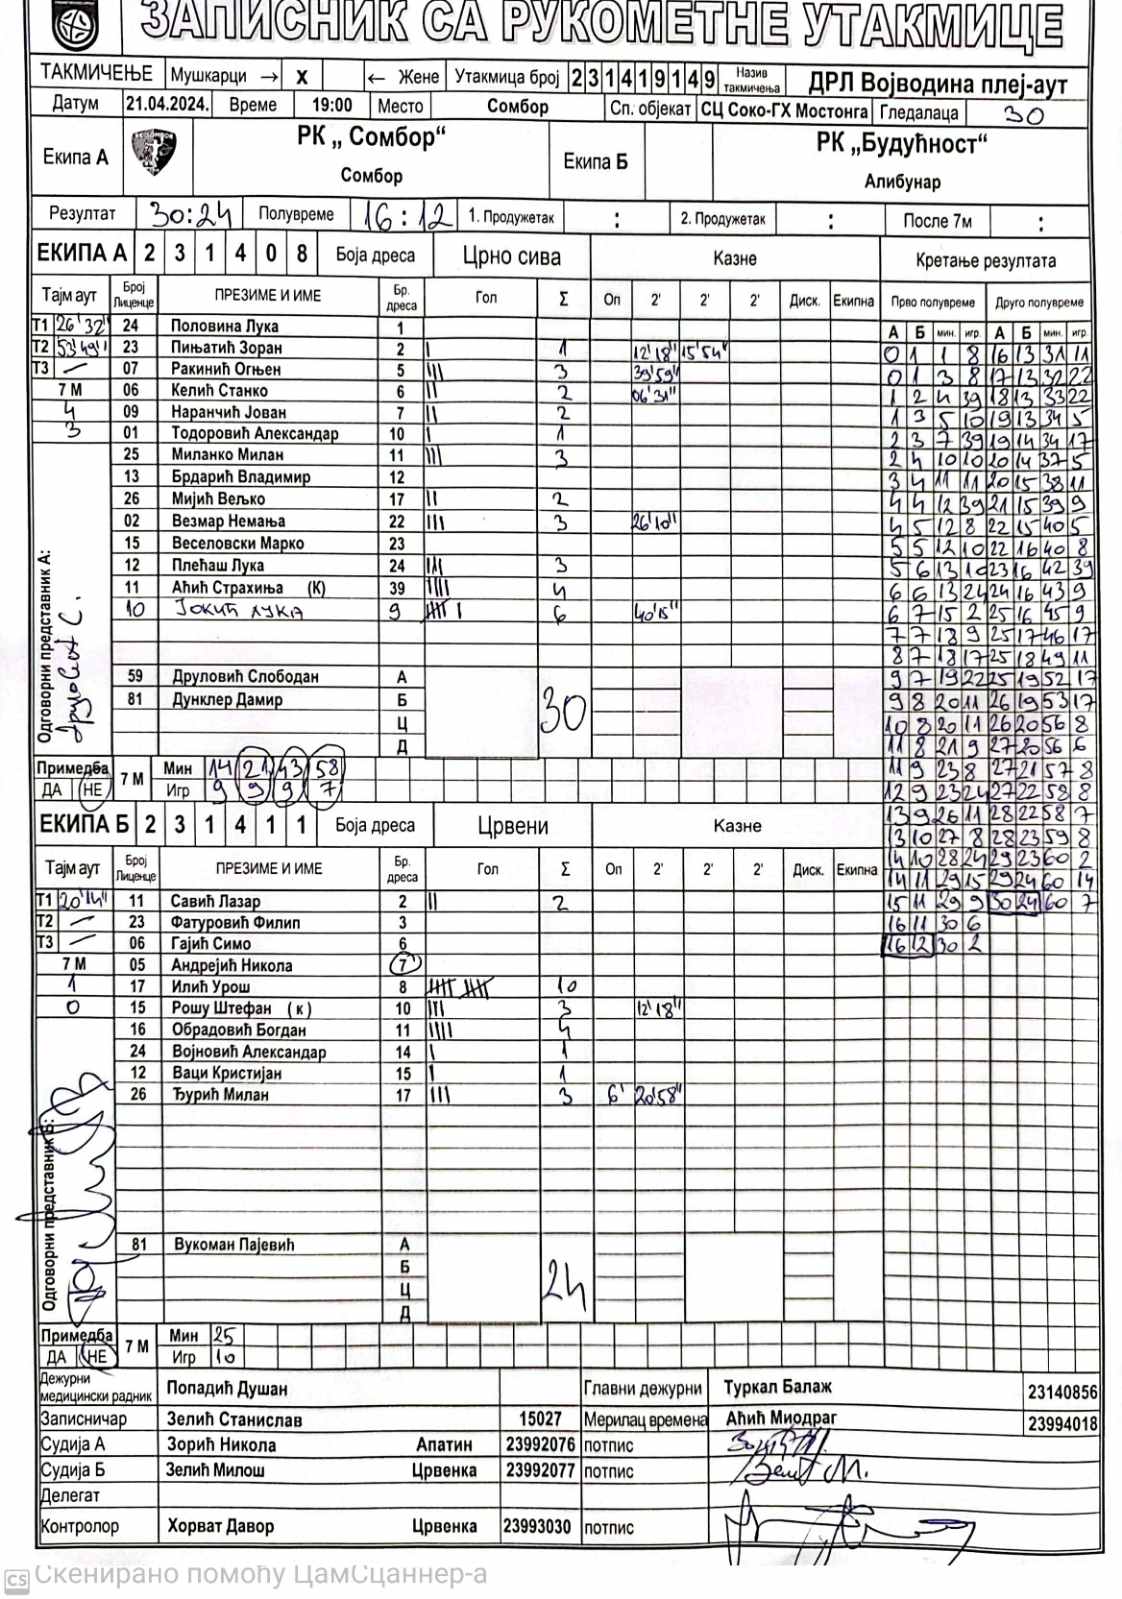 ЗАПИСНИК СА РУКОМЕТНЕ УТАКМИЦЕ
ТАКМИЧЕЊЕ Мушкарци → x ← Жене Утакмица број 2 3 1 4 1 9 1 4 9 Назив такмичења ДРЛ Војводина плеј-аут
Датум 21.04.2024. Време 19:00 Место Сомбор Сп. објекат СЦ Соко-ГХ Мостонга Гледалаца 30
Екипа А РК „ Сомбор“ Сомбор Екипа Б РК „Будућност“ Алибунар
Резултат 30:24 Полувреме 16:12 1. Продужетак : 2. Продужетак : После 7м :
ЕКИПА А 2 3 1 4 0 8 Боја дреса Црно сива Казне Кретање резултата
Тајм аут Број Лиценце ПРЕЗИМЕ И ИМЕ Бр. дреса Гол Σ Оп 2' 2' 2' Диск. Екипна Прво полувреме Друго полувреме
А Б мин. игр. А Б мин. игр.
Т1 26'32" 24 Половина Лука 1
Т2 53'49" 23 Пињатић Зоран 2 | 1 12'18" 15'54" 0 1 1 8 16 13 31 11
Т3 — 07 Ракинић Огњен 5 ||| 3 39'59" 0 1 3 8 17 13 32 22
7 М 06 Келић Станко 6 || 2 06'31" 1 2 4 39 18 13 33 22
4 09 Наранчић Јован 7 || 2 1 3 5 10 19 13 34 5
3 01 Тодоровић Александар 10 | 1 2 3 7 39 19 14 34 17
25 Миланко Милан 11 ||| 3 2 4 10 10 20 14 37 5
13 Брдарић Владимир 12 3 4 11 11 20 15 38 11
26 Мијић Вељко 17 || 2 4 4 12 39 21 15 39 9
02 Везмар Немања 22 ||| 3 26'10" 4 5 12 8 22 15 40 5
15 Веселовски Марко 23 5 5 12 10 22 16 40 8
12 Плећаш Лука 24 ||| 3 5 6 13 10 23 16 42 39
11 Аћић Страхиња (К) 39 |||| 4 6 6 13 24 24 16 43 9
10 Јокић Лука 9 |||| | 6 40'15" 6 7 15 2 25 16 45 9
7 7 18 9 25 17 46 17
8 7 18 17 25 18 49 11
Одговорни представник А: Друловић С.
59 Друловић Слободан А 9 7 19 22 25 19 52 17
81 Дунклер Дамир Б 30 9 8 20 11 26 19 53 17
Ц 10 8 20 11 26 20 56 8
Д 11 8 21 9 27 20 56 6
Примедба 7 М Мин 14 21 43 58 11 9 23 8 27 21 57 8
ДА НЕ Игр 9 9 9 7 12 9 23 24 27 22 58 8
ЕКИПА Б 2 3 1 4 1 1 Боја дреса Црвени Казне 13 9 26 11 28 22 58 7
13 10 27 8 28 23 59 8
Тајм аут Број Лиценце ПРЕЗИМЕ И ИМЕ Бр. дреса Гол Σ Оп 2' 2' 2' Диск. Екипна 14 10 28 24 29 23 60 2
14 11 29 15 29 24 60 14
Т1 20'14" 11 Савић Лазар 2 || 2 15 11 29 9 30 24 60 7
Т2 — 23 Фатуровић Филип 3 16 11 30 6
Т3 — 06 Гајић Симо 6 16 12 30 2
7 М 05 Андрејић Никола 7
1 17 Илић Урош 8 |||| |||| 10
0 15 Рошу Штефан (к) 10 ||| 3 12'18"
16 Обрадовић Богдан 11 |||| 4
24 Војновић Александар 14 | 1
12 Ваци Кристијан 15 | 1
26 Ђурић Милан 17 ||| 3 6' 20'58"
Одговорни представник Б:
81 Вукоман Пајевић А
Б 24
Ц
Д
Примедба 7 М Мин 25
ДА НЕ Игр 10
Дежурни медицински радник Попадић Душан Главни дежурни Туркал Балаж 23140856
Записничар Зелић Станислав 15027 Мерилац времена Аћић Миодраг 23994018
Судија А Зорић Никола Апатин 23992076 потпис
Судија Б Зелић Милош Црвенка 23992077 потпис
Делегат
Контролор Хорват Давор Црвенка 23993030 потпис
CS Скенирано помоћу ЦамСцаннер-а